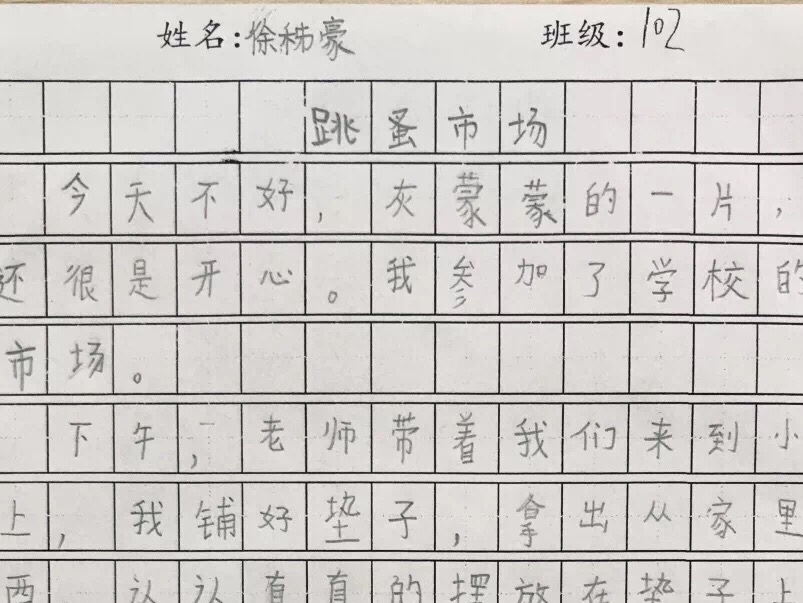 姓名:徐秫豪 班级:102
跳蚤市场
今天不好,灰蒙蒙的一片,
还很是开心。我参加了学校的
市场。
下午,老师带着我们来到小
上,我铺好垫子,拿出从家里
西 认认真真的摆放在垫子上